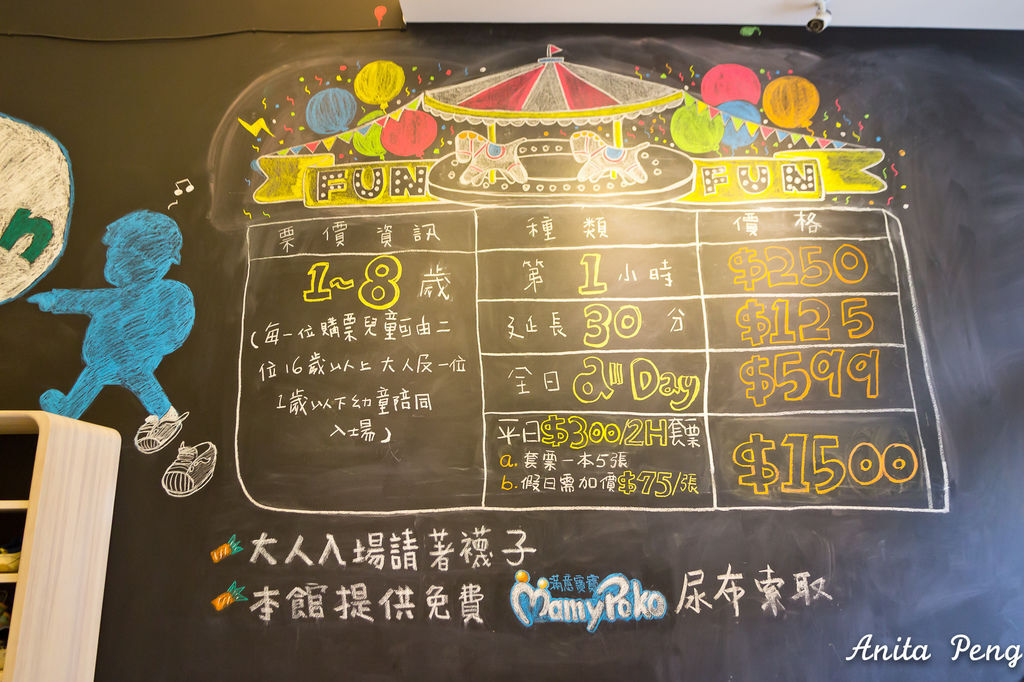 FUN FUN
票價資訊
種類
價格
1~8歲
(每一位購票兒童可由二
位16歲以上大人及一位
1歲以下幼童陪同
入場)
第1小時
$250
延長30分
$125
全日all Day
$599
平日$300/2H套票
a.套票一本5張
b.假日需加價$75/張
$1500
大人入場請著襪子
本館提供免費 滿意寶寶 MamyPoko 尿布索取
n
Anita Peng